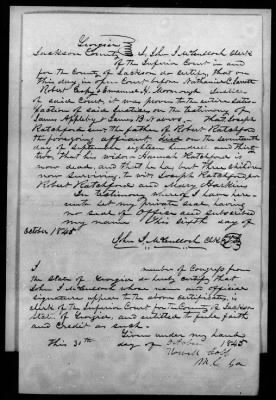 Georgia
Jackson County I, John I McCulloch Clerk
of the Superior Court in and
for the County of Jackson do certify, that on
this day, in open Court before Nathaniel C Jarrett
Robert & Emanuel H Justices
of said Court, it was proven to the entire satis-
faction of said Justices on the testimony of
James Appleby & James B that Joseph
Ratchford Senr the father of Robert Ratchford
the foregoing affiant died on the seventeenth
day of September eighteen hundred and thirty
two that his widow Hannah Ratchford is
now dead, and that he has but three children
now surviving, to wit Joseph Ratchford Jr
Robert Ratchford and Mary Harkins
In testimony whereof I have here-
unto set my private seal, having
no seal of Office and subscribed
my name This sixth day of
October 1845
John I McCulloch Clk

I member of Congress from
the State of Georgia do hereby certify that
John I McCulloch whose name and official
signature appear to the above certificate, is
clerk of the Superior Court for the County of Jackson
State of Georgia, and entitled to full faith
and Credit as such.
Given under my hand
This 30th day of October 1845
Howell Cobb
M.C. Ga